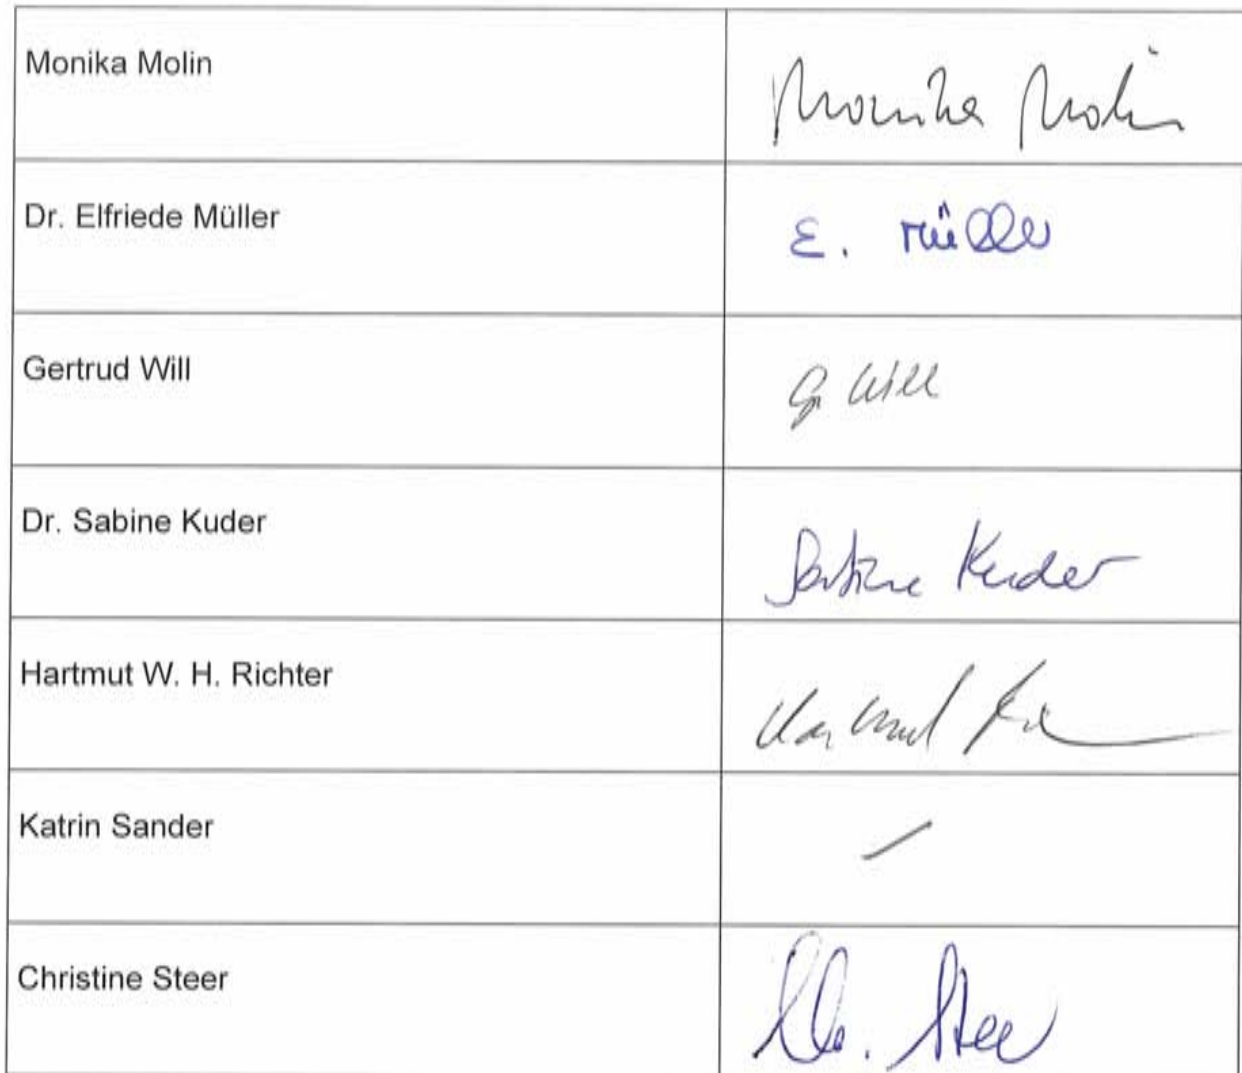 Monika Molin
Monika Molin
Dr. Elfriede Müller
E. Müller
Gertrud Will
G. Will
Dr. Sabine Kuder
Sabine Kuder
Hartmut W. H. Richter
Hartmut
Katrin Sander
Christine Steer
Ch. Steer